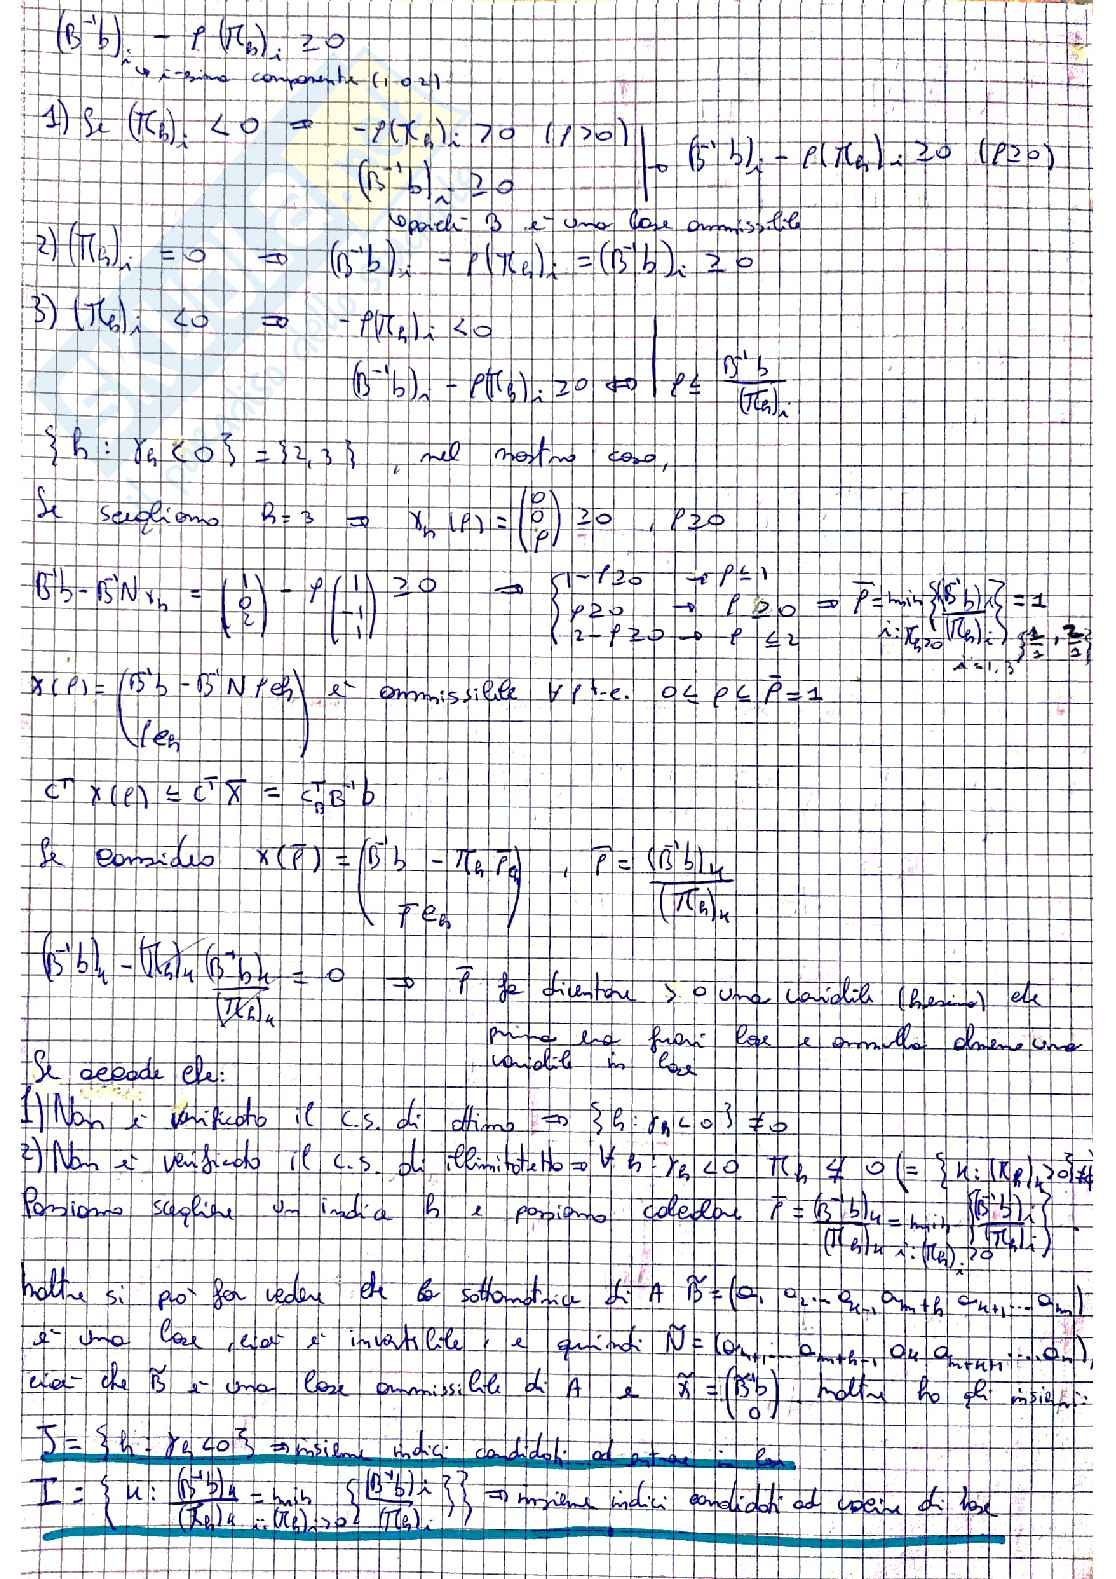 (B⁻¹b)ᵢ - ρ(πₕ)ᵢ ≥ 0
↳ i-esima componente (1 o 2)
1) Se (πₕ)ᵢ < 0 ⇒ -ρ(πₕ)ᵢ > 0 (ρ>0)
(B⁻¹b)ᵢ ≥ 0 → (B⁻¹b)ᵢ - ρ(πₕ)ᵢ ≥ 0 (ρ≥0)
↳ poiché B è una base ammissibile
2) (πₕ)ᵢ = 0 ⇒ (B⁻¹b)ᵢ - ρ(πₕ)ᵢ = (B⁻¹b)ᵢ ≥ 0
3) (πₕ)ᵢ < 0 ⇒ -ρ(πₕ)ᵢ < 0
(B⁻¹b)ᵢ - ρ(πₕ)ᵢ ≥ 0 ⇔ ρ ≤ B⁻¹b / (πₕ)ᵢ
{h : γₕ < 0} = {2,3}, nel nostro caso,
Se scegliamo h=3 ⇒ xₕ(ρ) = (0 0 ρ) ≥ 0, ρ≥0
B⁻¹b - B⁻¹N xₕ = (1 0 2) - ρ(1 -1 1) ≥ 0 ⇒ { 1-ρ≥0 → ρ≤1
ρ≥0 → ρ≥0 ⇒ ρ̄ = min i:πₕ>0 {(B⁻¹b)ᵢ / (πₕ)ᵢ} = 1
2-ρ≥0 → ρ≤2 i=1,3 {1/1, 2/1}
x(ρ) = (B⁻¹b - B⁻¹Nρeₕ ρeₕ) è ammissibile ∀ρ t.c. 0≤ρ≤ρ̄=1
cᵀx(ρ) ≤ cᵀx̄ = c_Bᵀ B⁻¹b
Se considero x(ρ̄) = (B⁻¹b - πₕρ̄ ρ̄eₕ), ρ̄ = (B⁻¹b)ₖ / (πₕ)ₖ
(B⁻¹b)ₖ - (πₕ)ₖ (B⁻¹b)ₖ / (πₕ)ₖ = 0 ⇒ ρ̄ fa diventare > 0 una variabile che
prima era fuori base e annulla almeno una
variabile in base
Se accade che:
1) Non è verificato il c.s. di ottimo ⇒ {h : γₕ < 0} ≠ 0
2) Non è verificato il c.s. di illimitatetto ⇒ ∀ h : γₕ < 0 πₕ ≰ 0 (= {k : (πₕ)ₖ > 0} ≠
Possiamo scegliere un indice h e possiamo calcolare ρ̄ = (B⁻¹b)ₖ / (πₕ)ₖ = min i:(πₕ)ᵢ>0 {(B⁻¹b)ᵢ / (πₕ)ᵢ}.
Inoltre si può far vedere che la sottomatrice di A B̃ = (a₁ a₂ ... aₖ₋₁ aₘ₊ₕ aₖ₊₁ ... aₘ)
è una base, cioè è invertibile, e quindi Ñ = (aₘ₊₁ ... aₘ₊ₕ₋₁ aₖ aₘ₊ₕ₊₁ ... aₙ),
cioè che B̃ è una base ammissibile di A e x̃ = (B̃⁻¹b 0). Inoltre ho gli insiemi:
J = {h : γₕ < 0} ⇒ insieme indici candidati ad entrare in base
I = {k : (B⁻¹b)ₖ / (πₕ)ₖ = min i:(πₕ)ᵢ>0 {(B⁻¹b)ᵢ / (πₕ)ᵢ}} ⇒ insieme indici candidati ad uscire di base